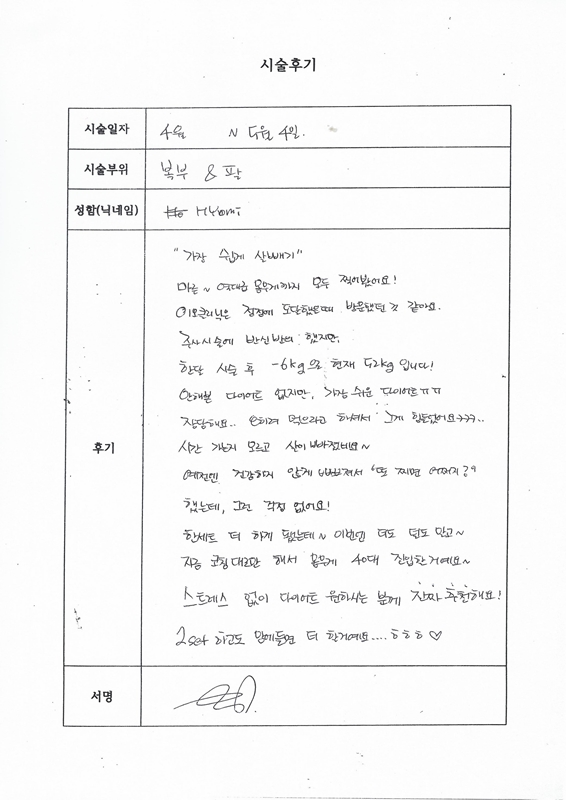 시술후기
시술일자 4월 ~ 5월 4일.
시술부위 복부 & 팔
성함(닉네임) HYomi
후기
"가장 쉽게 살빼기"
마른 ~ 역대급 몸무게까지 모두 찍어봤어요!
클리닉은 정점에 도달했을때 방문했던 것 같아요.
주사시술에 반신반의 했지만,
한달 시술 후 -6kg으로 현재 52kg입니다!
안해본 다이어트 없지만, 가장 쉬운 다이어트ㅠㅠ
장담해요.. 오히려 먹으라고 하셔서 그게 힘들었어요ㅋㅋㅋ..
시간 가는지 모르고 살이 빠졌네요~
예전엔 건강하지 않게 빠져서 '또 찌면 어쩌지?'
했는데, 그런 걱정 없어요!
한세트 더 하게 됐는데~ 이번엔 더도 덜도 말고~
지금 코칭대로만 해서 몸무게 40대 진입할거예요~
스트레스 없이 다이어트 원하시는 분께 진짜 추천해요!
하고도 맘에들면 더 할거예요....ㅎㅎㅎ♡
서명